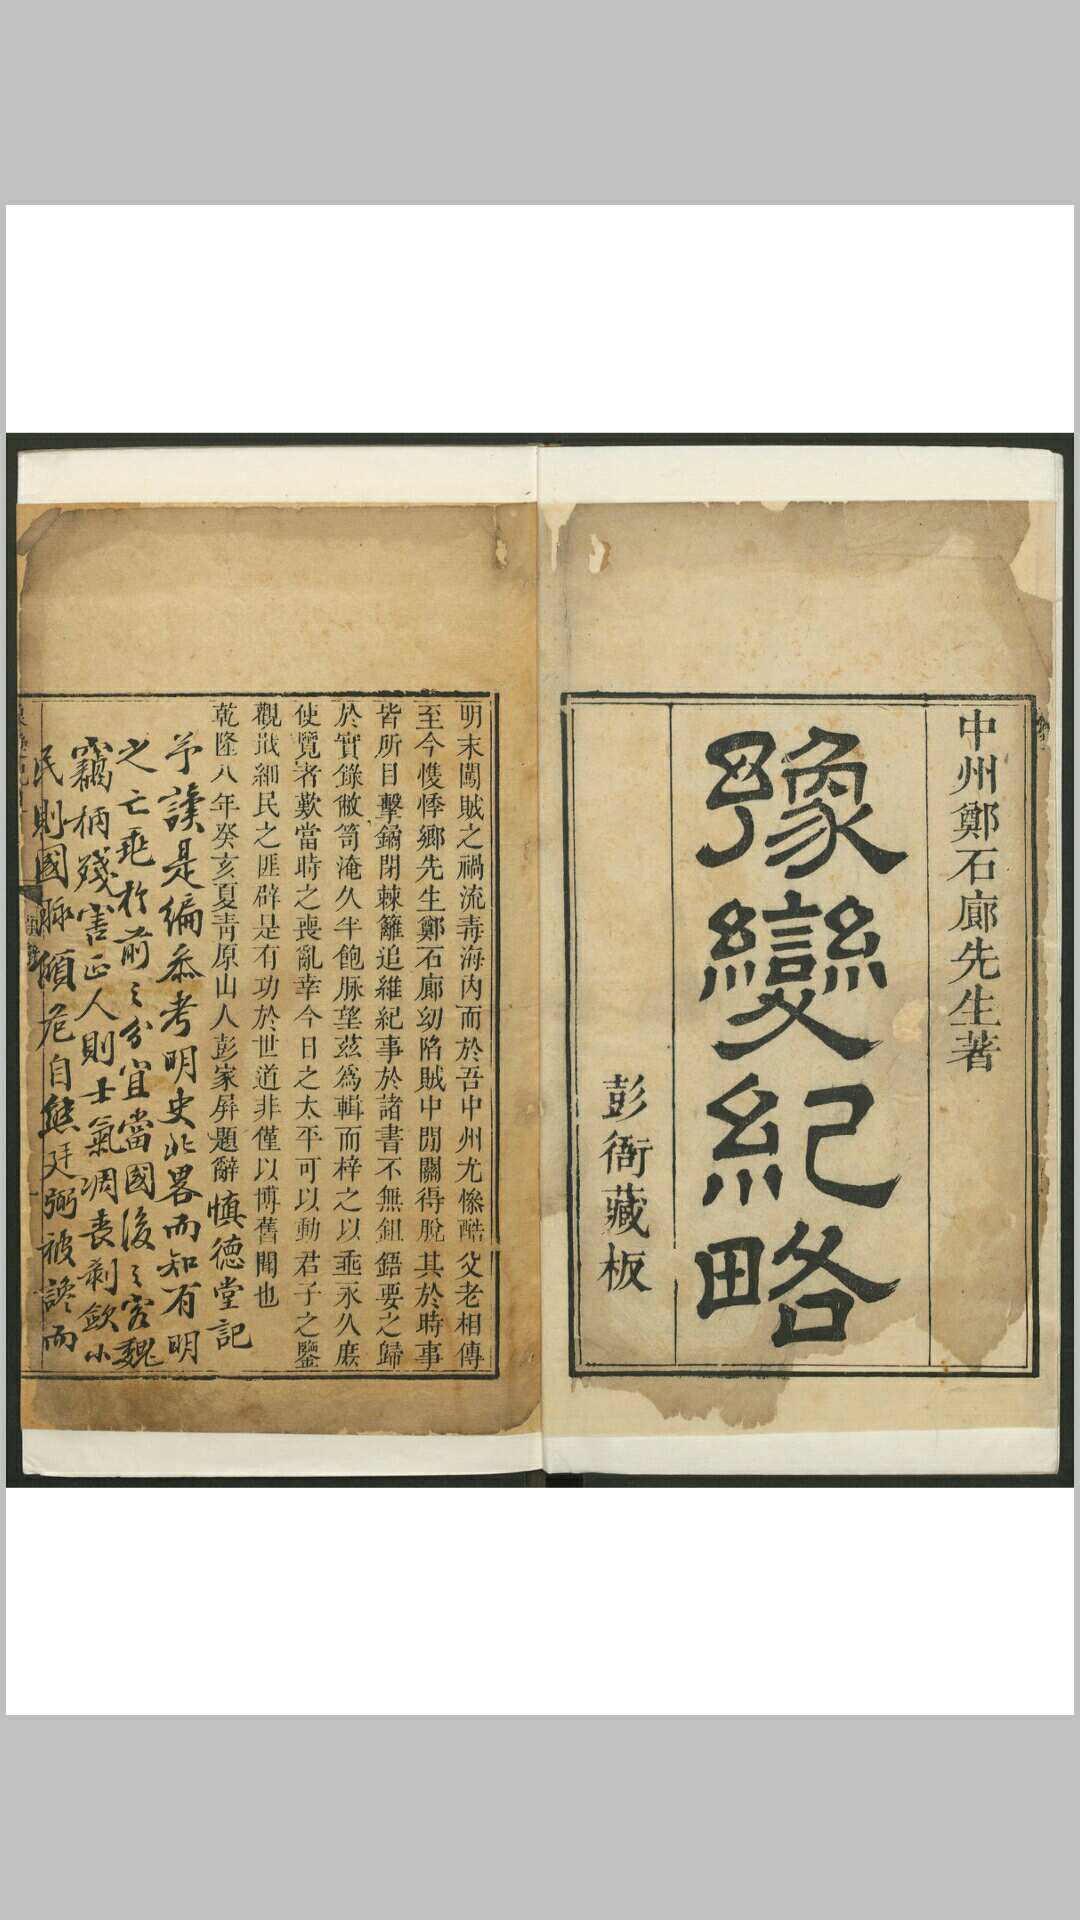 中州鄭石廊先生著
豫變紀略
彭衙藏板
明末闖賊之禍流毒海内而於吾中州尤慘酷父老相傳
至今惶悸鄉先生鄭石廊幼陷賊中閒關得脫其於時事
皆所目擊鍵閉棘籬追維紀事於諸書不無鉏鋙要之歸
於實錄敝笥淹久半飽脉望茲為輯而梓之以垂永久庶
使覽者歎當時之喪亂幸今日之太平可以動君子之鑒
觀戢細民之匪辟是有功於世道非僅以博舊聞也
乾隆八年癸亥夏青原山人彭家屏題辭 慎德堂記
予讀是編叅考明史北畧而知有明
之亡兆於前之分宜當國後之客魏
竊柄殘害正人則士氣凋喪剥歛小
民則國脉傾危自熊廷弼被讒而